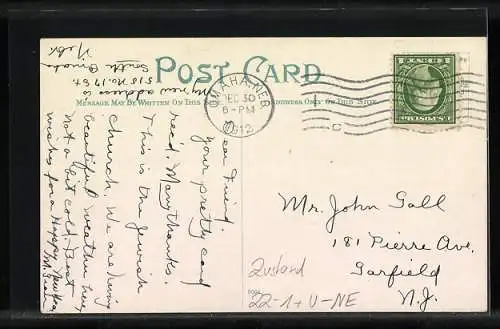 POST CARD
MESSAGE MAY BE WRITTEN ON THIS
ADDRESS ONLY ON THIS SIDE
OMAHA, NEB.
DEC 30
6-PM
1912
My new address is
515 No. 17 St.
South Omaha
Nebr.
Dear Friend.
Your pretty card
recd. Many thanks.
This is the Jewish
church. We are having
beautiful weather here
not a bit cold. Best
wishes for a Happy New Year
Mr. John Gall
181 Pierre Ave.
Garfield
N.J.
Zustand
22-1+U-NE